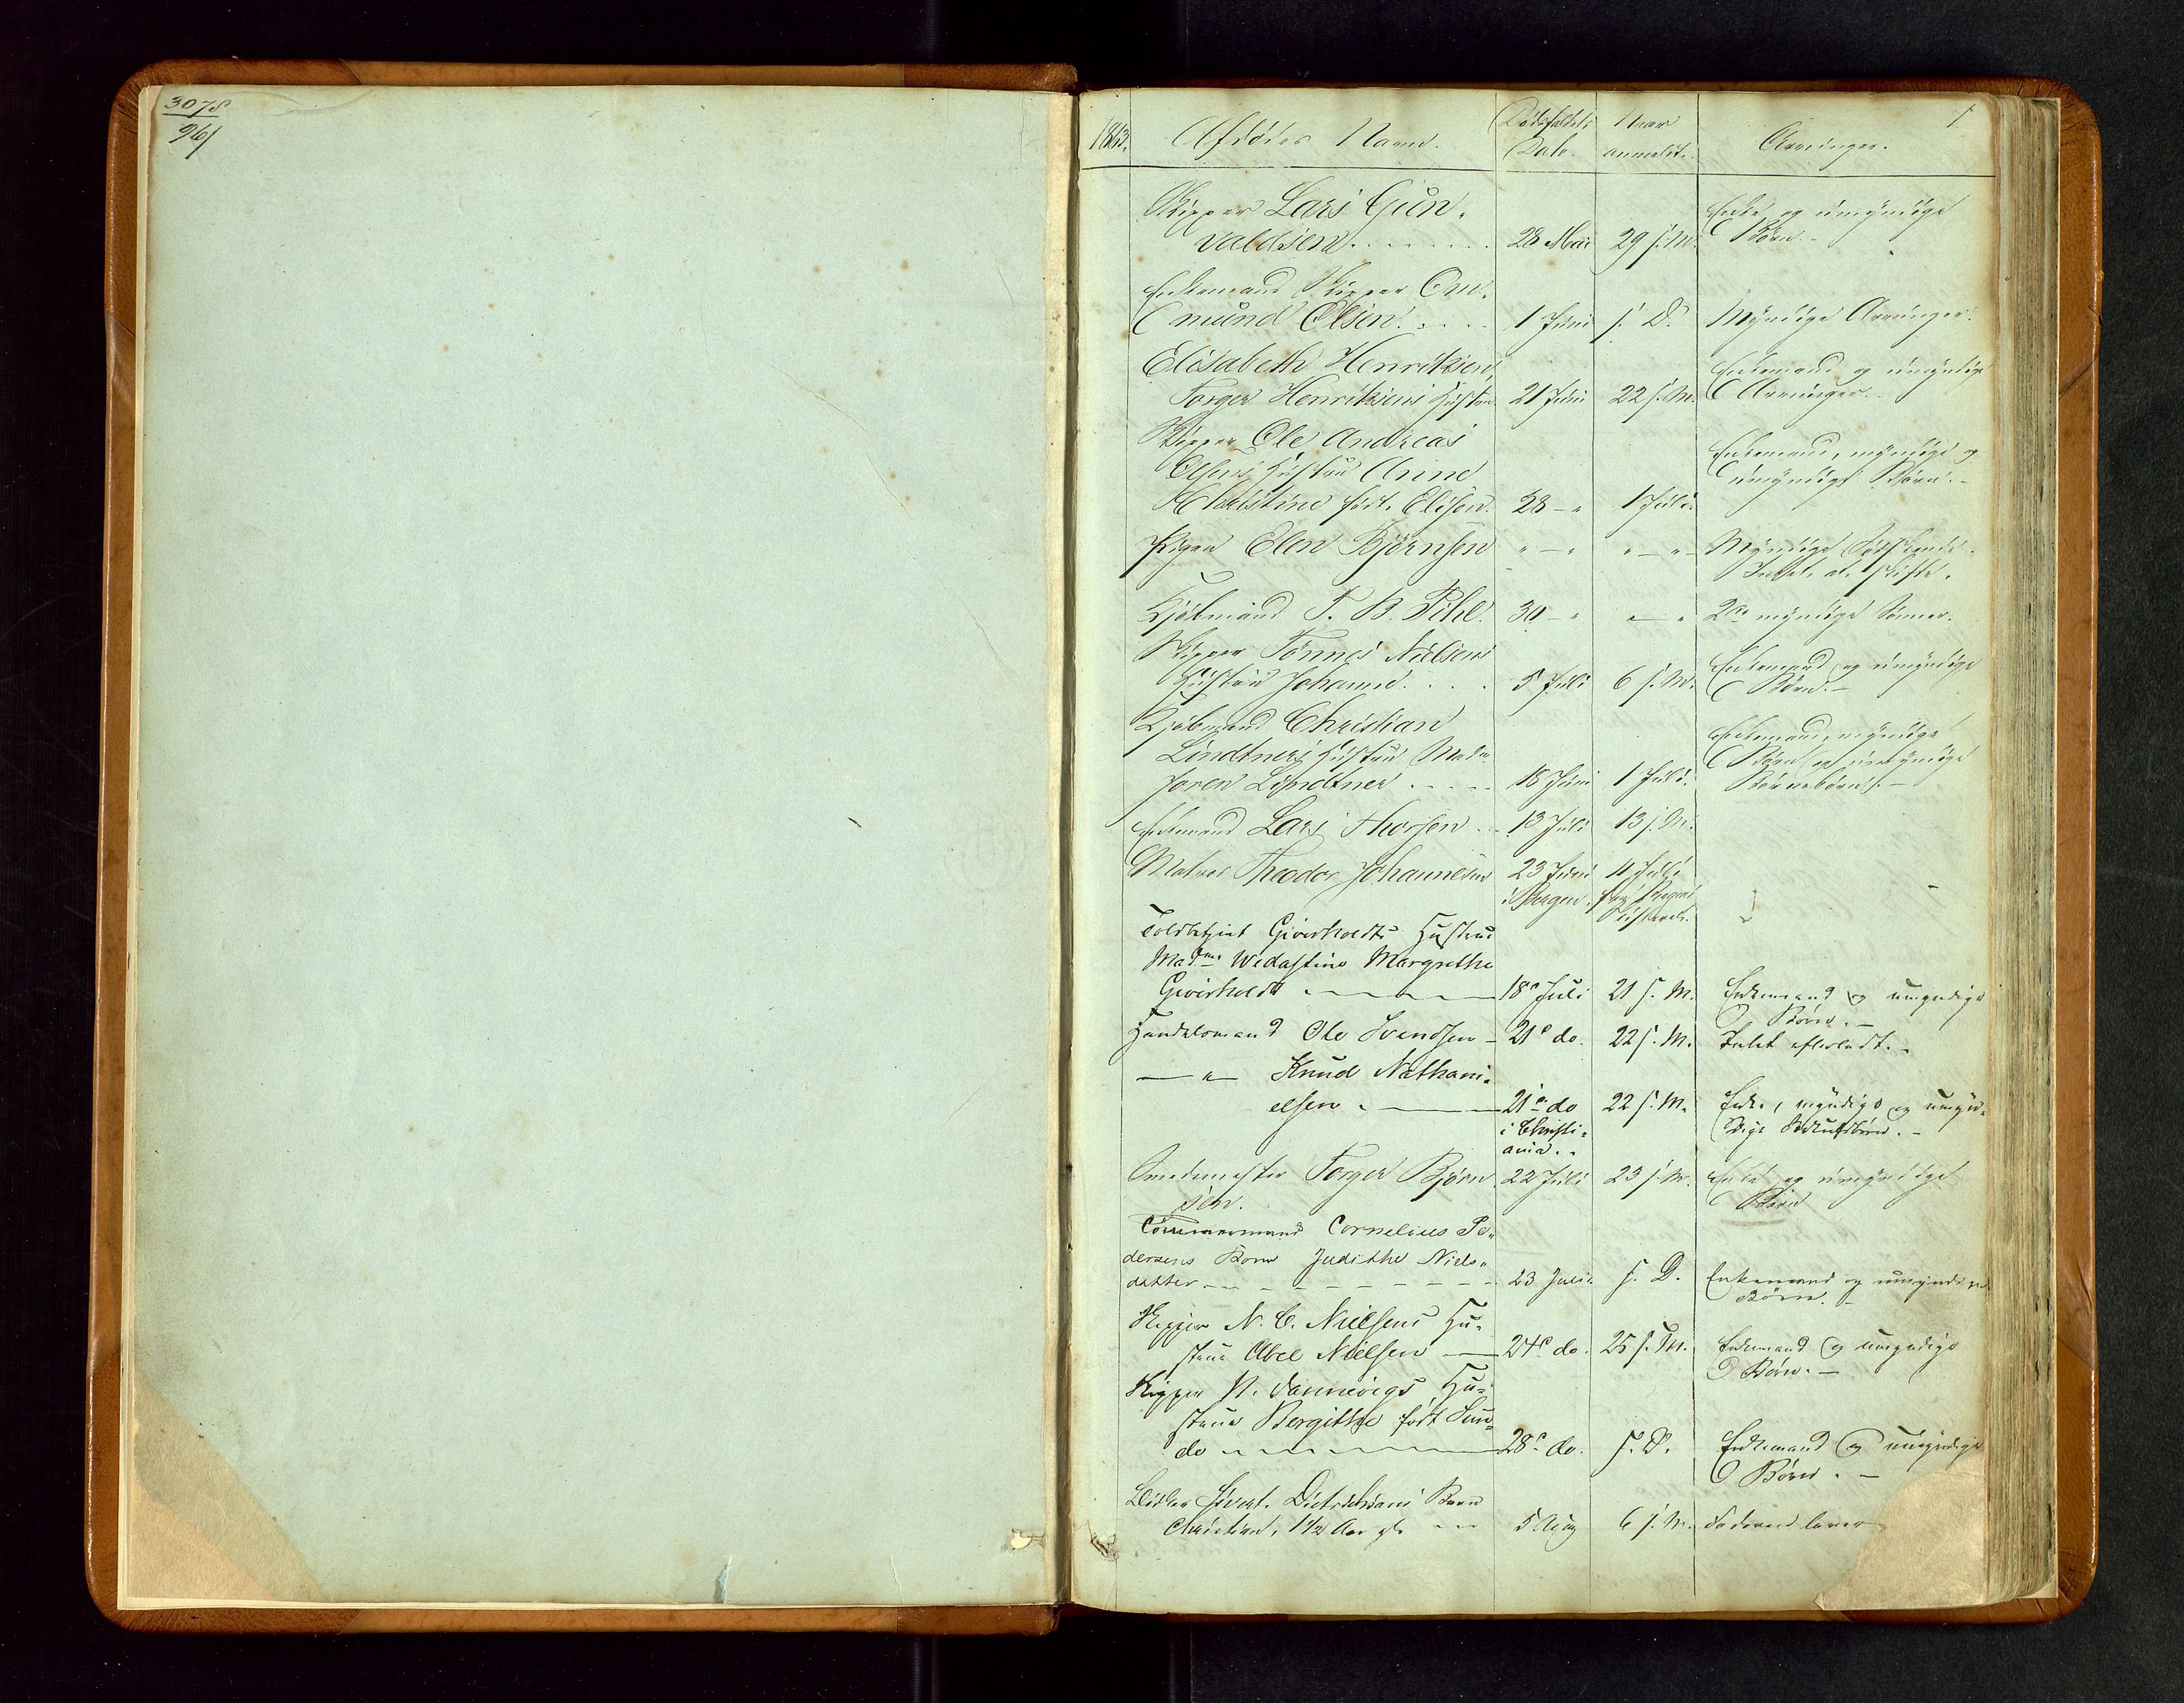 3078
96/
1
1863. Afdødes Navn. Dødsfaldets Date. Naar anmeldt. Arvinger.
Skipper Lars Gun-
valdsen. . . . . . . 28 Mai 29 s. M. Enke og umyndige
Børn. -
Enkemand Skipper Om-
mund Olsen. . . . . 1 Juni s. D. Myndige Arvinger.
Elisabeth Henriksen,
Torger Henriksens Hustru 21 Juni 22 s. M. Enkemand og umyndige
Arvinger.
Skipper Ole Andreas
Olsens Hustru Anne
Christine født Elisen. 28 - " 1 Juli. Enkemand, myndige og
umyndige Børn. -
Pigen Elen Bjørnsen " - " " - " - Myndige Sødskende.
Intet at skifte.
Kjøbmand T. B. Pihl. 30 - " " - " 2de myndige Sønner.
Skipper Tønnes Nielsens
Hustru Johanne. . . . 5 Juli 6 s. M. Enkemand og umyndige
Børn. -
Kjøbmand Christian
Lindtners Hustru Mada
Joren Lindtner . . . . . 18 Juni 1 Juli. Enkemand, myndige
Børn og umyndige
Børnebørn. -
Enkemand Lars Thorsen . . 13 Juli 13 s. M.
Matros Theodor Johannesen 23 Juni 11 Juli
i Bergen. fra Bergens
Skifteret.
Toldbetjent Giverholdts Hustrue
Madme Wedastine Margrethe
Giverholdt 18e Juli 21 s. M. Enkemand og umyndige
Børn. -
Handelsmand Ole Svendsen - 21e do. 22 s. M. Intet efterladt. -
— " — Knud Nathani-
elsen . — 21e do 22 s. M. Enke, myndige og umyn-
dige
i Christi-
ania. -
Smedemester Torger Bjørn 22 Juli 23 s. M. Enke og umyndige
sen. Børn
Tømmermand Cornelius Pe-
dersens Kone Judithe Niels-
datter - - - - - - - 23 Juli s. D. Enkemand og umyndige
Børn. -
Skipper N. C. Nielsens Hu-
strue Abel Nielsen — 24e do. 25 s. M. Enkemand og umyndige
Børn. -
Skipper N. Dannevigs Hu-
strue Bergitthe født Sun-
de 28e do. s. D. Enkemand og umyndige
Børn. -
Sivert Dietrichsens Barn
Christian, 1 1/2 Aar gl. - - 5 Aug 6 s. M. Faderen lever